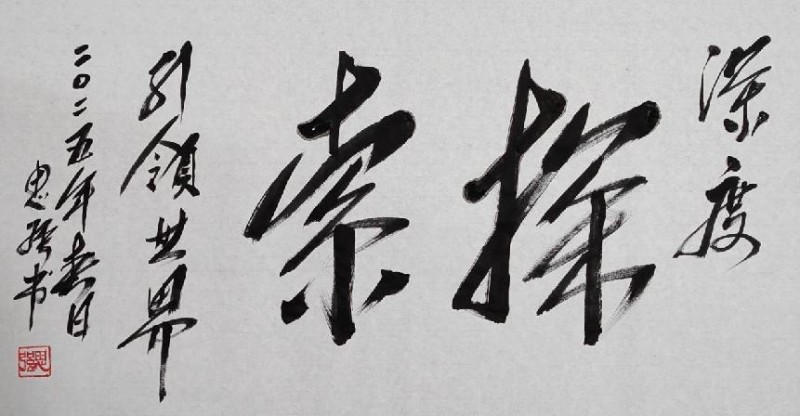 深度
探索
引领世界
二〇二五年春日
思强书